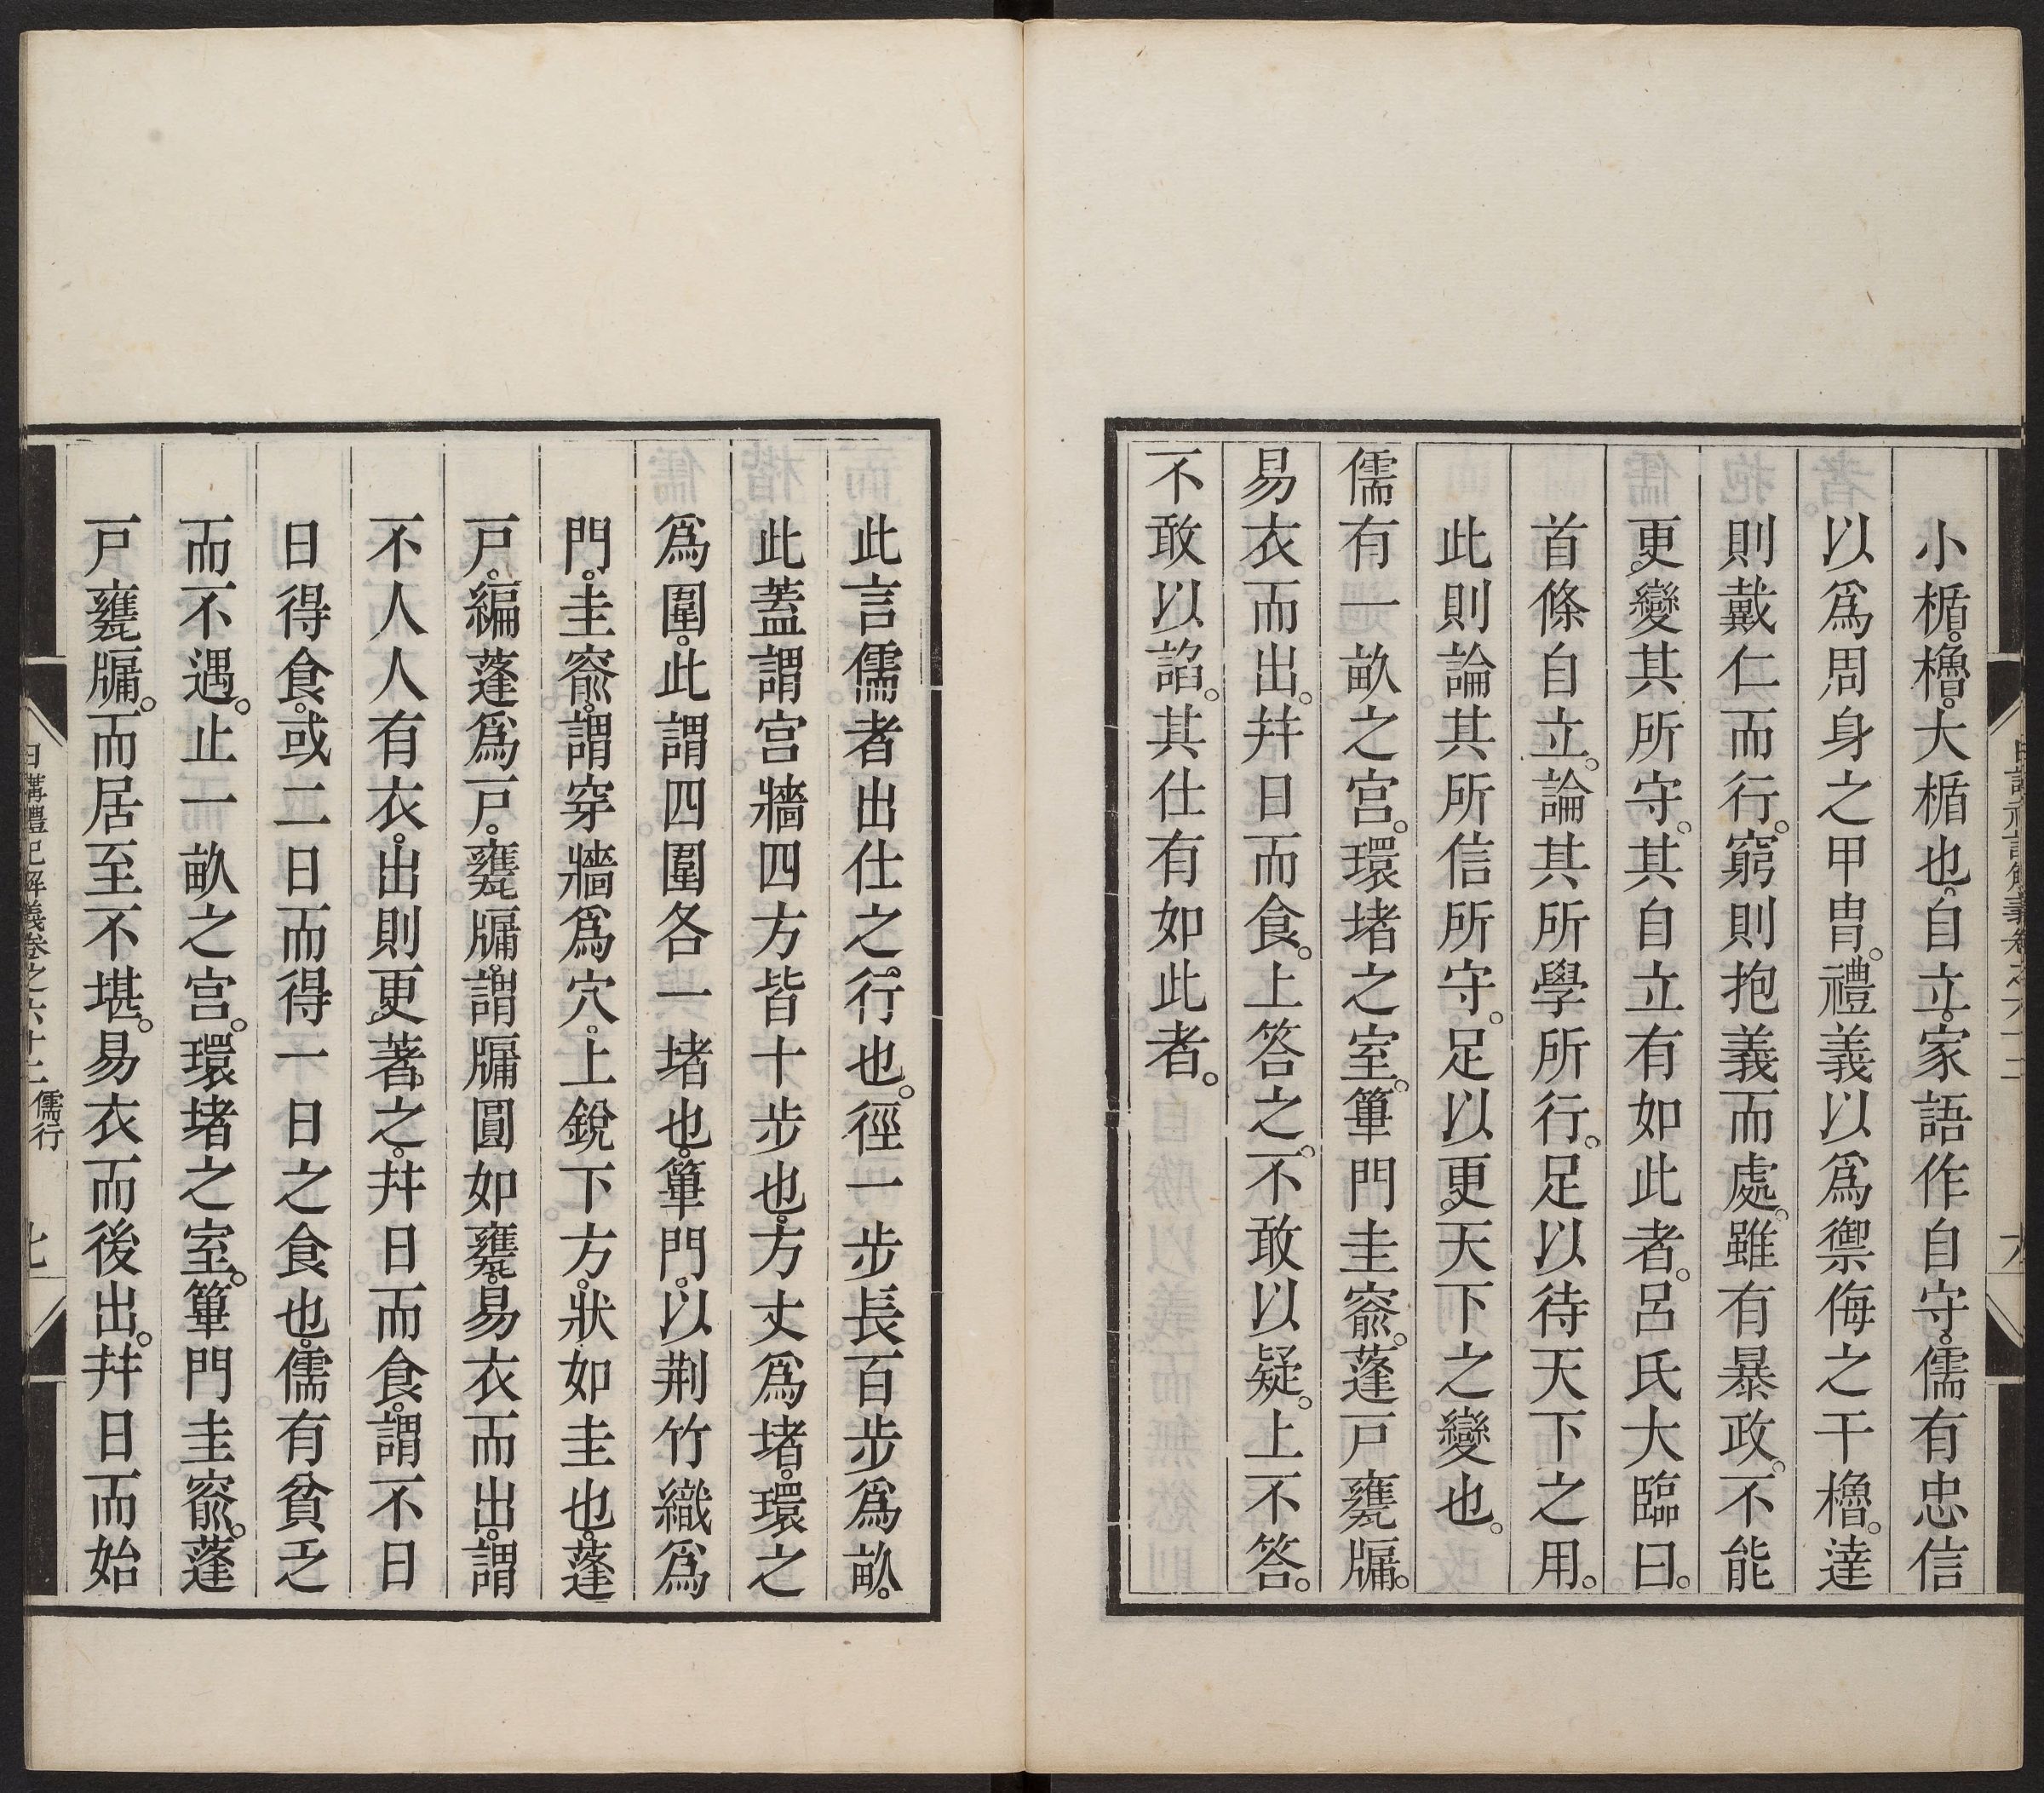 小楯。櫓。大楯也。自立。家語作自守。儒有忠信
以爲周身之甲冑。禮義以爲禦侮之干櫓。達
則戴仁而行。窮則抱義而處。雖有暴政。不能
更變其所守。其自立有如此者。呂氏大臨曰。
首條自立。論其所學所行。足以待天下之用。
此則論其所信所守。足以更天下之變也。
儒有一畝之宮。環堵之室。篳門圭窬。蓬戸甕牖。
易衣而出。幷日而食。上答之。不敢以疑。上不答。
不敢以諂。其仕有如此者。
此言儒者出仕之行也。徑一步長百步爲畝。
此蓋謂宮牆四方皆十步也。方丈爲堵。環之
爲圍。此謂四圍各一堵也。篳門。以荆竹織爲
門。圭窬。謂穿牆爲穴。上銳下方。狀如圭也。蓬
戸。編蓬爲戸。甕牖。謂牖圓如甕。易衣而出。謂
不人人有衣。出則更著之。幷日而食。謂不日
日得食。或二日而得一日之食也。儒有貧乏
而不遇。止一畝之宮。環堵之室。篳門圭窬。蓬
戸甕牖。而居至不堪。易衣而後出。幷日而始
日講禮記解義卷之六十二 儒行 七